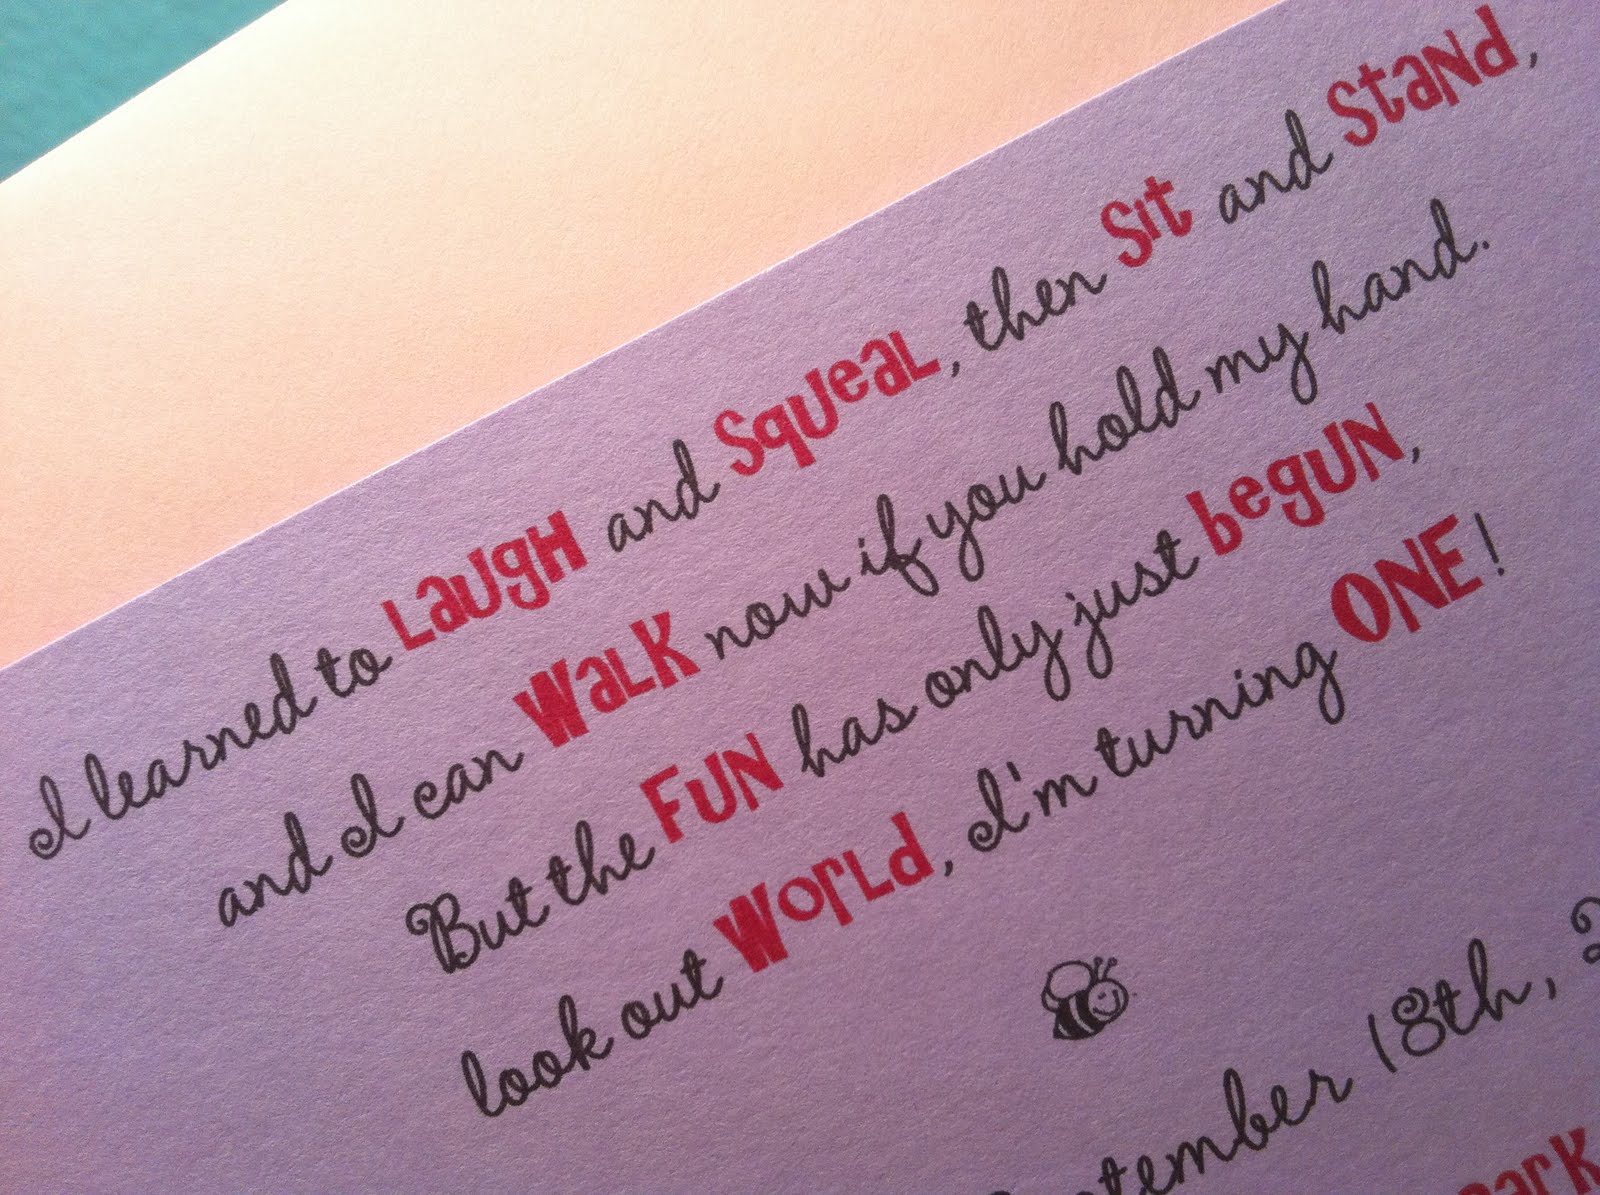 I learned to Laugh and Squeal, then Sit and Stand,
and I can Walk now if you hold my hand.
But the Fun has only just begun,
look out World, I'm turning ONE!
18th,